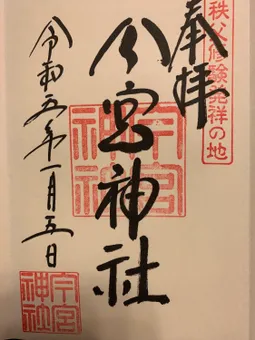 秩父修験発祥の地
奉拝
今宮神社
今宮
神社
令和五年一月五日
今宮
神社